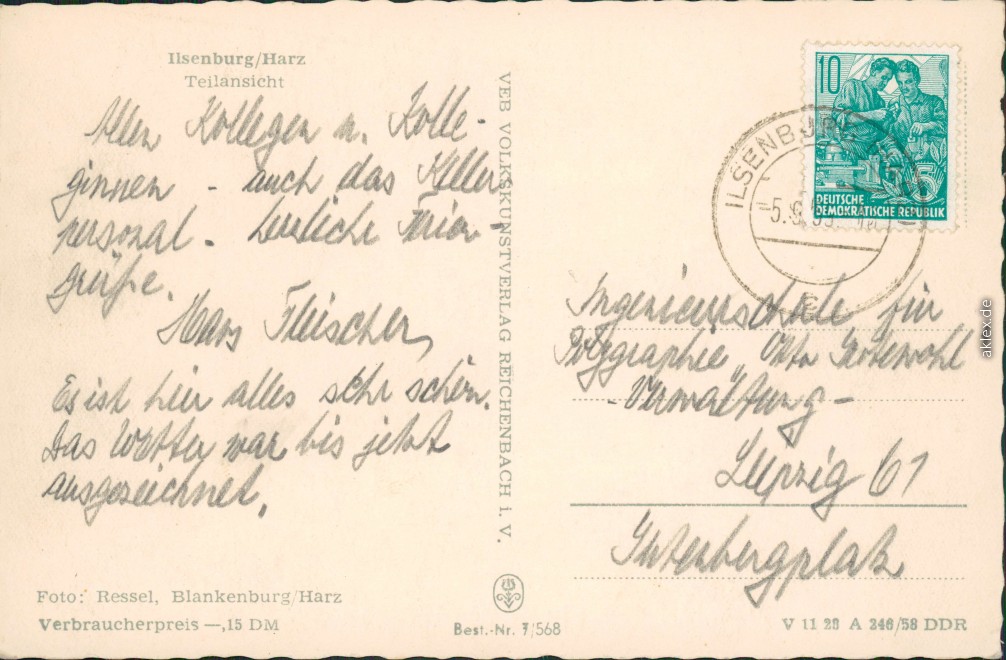 Ilsenburg/Harz
Teilansicht
Allen Kollegen u. Kolle-
ginnen - auch das Keller
personal - herzliche
grüße.
Hans Fleischer
Es ist hier alles sehr schön.
Das Wetter war bis jetzt
ausgezeichnet.
Foto: Ressel, Blankenburg/Harz
Verbraucherpreis —,15 DM
VEB VOLKSKUNSTVERLAG REICHENBACH i. V.
Best.-Nr. 7/568
10
5
DEUTSCHE
DEMOKRATISCHE REPUBLIK
ILSENBURG
Ingenieurschule für
Polygraphie „Otto Grotewohl
- Verwaltung -
Leipzig C1
Gutenbergplatz
V 11 28 A 246/58 DDR
aklex.de